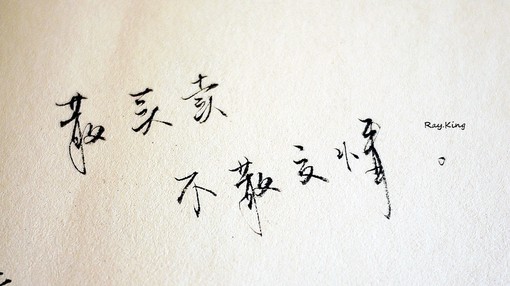 散买卖
不散交情
Ray.King
。